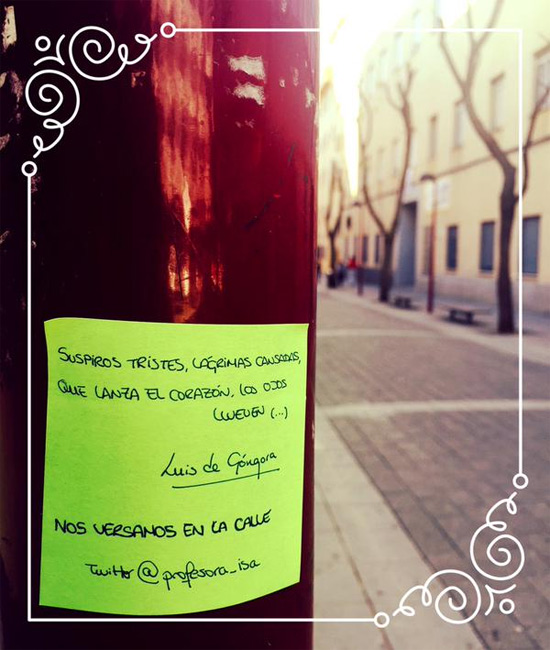 SUSPIROS TRISTES, LAGRIMAS CANSADAS,
QUE LANZA EL CORAZÓN, LOS OJOS
LLUEVEN (...)
Luis de Góngora
NOS VERSAMOS EN LA CALLE
Twitter @profesora_isa